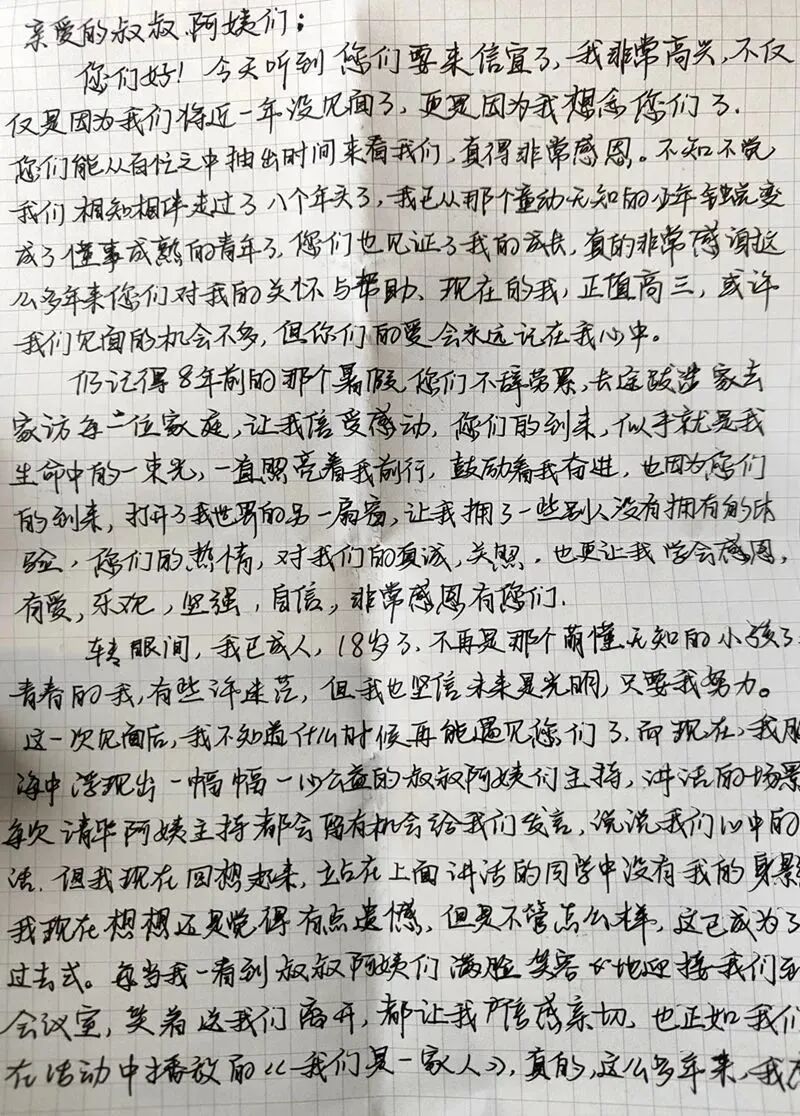 亲爱的叔叔、阿姨们：
您们好！今天听到您们要来信宜了，我非常高兴，不仅
仅是因为我们将近一年没见面了，更是因为我想念您们了．
您们能从百忙之中抽出时间来看我们，真得非常感恩。不知不觉
我们相知相伴走过了八个年头了，我已从那个童动无知的少年蜕变
成了懂事成熟的青年了，您们也见证了我的成长，真的非常感谢这
么多年来您们对我的关怀与帮助、现在的我，正值高三，或许
我们见面的机会不多，但你们的爱会永远记在我心中。
仍记得8年前的那个暑假，您们不辞劳累，长途跋涉家去
家访每一位家庭，让我倍受感动，您们的到来，似乎就是我
生命中的一束光，一直照亮着我前行，鼓励着我奋进，也因为您们
的到来，打开了我世界的另一扇窗，让我拥了一些别人没有拥有的体
验，您们的热情，对我们的真诚，关照．也更让我学会感恩，
有爱，乐观，坚强，自信，非常感恩有您们．
转眼间，我已成人，18岁了．不再是那个萌懂无知的小孩了
青春的我，有些许迷茫，但我也坚信未来是光明，只要我努力。
这一次见面后，我不知道什么时候再能遇见您们了．而现在，我脑
海中浮现出一幅幅一沙公益的叔叔阿姨们主持，讲话的场景
每次请华阿姨主持都会留有机会给我们发言，说说我们心中的
话．但我现在回想起来，站在上面讲话的同学中没有我的身影
我现在想想还是觉得有点遗憾，但是不管怎么样，这已成为了
过去式。每当我一看到叔叔阿姨们满脸笑容地迎接我们到
会议室，笑着送我们离开，都让我倍感亲切，也正如我们
在活动中播放的《我们是一家人》，真的，这么多年来，我